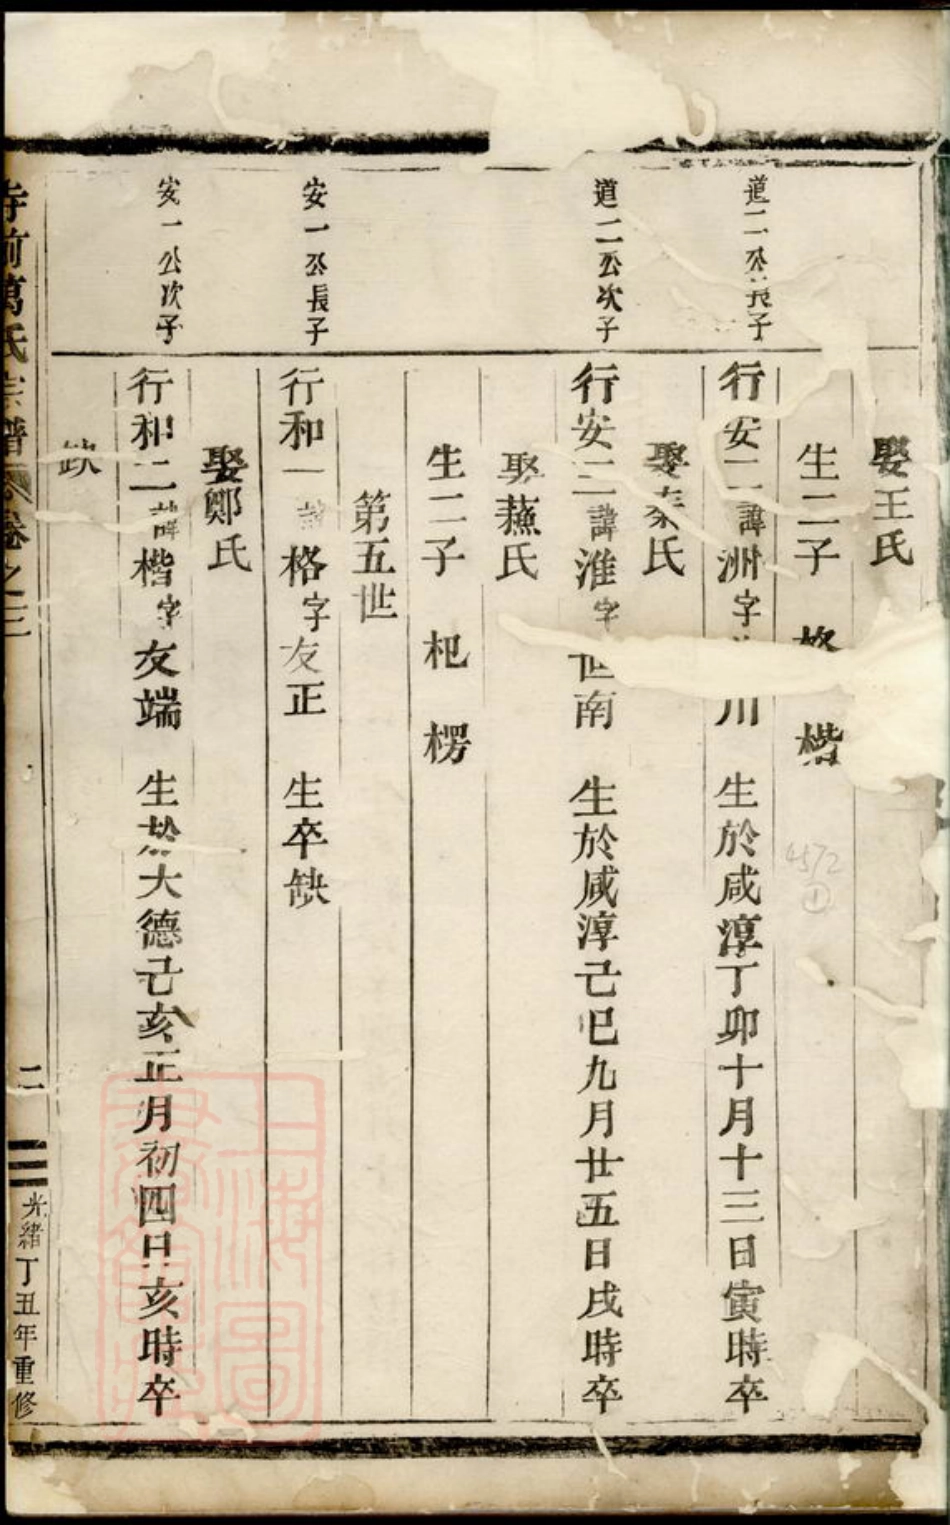 娶王氏
生二子 格 楷
道二公長子
行安二諱洲字 川 生於咸淳丁卯十月十三日寅時卒
娶秦氏
道二公次子
行安三諱淮字世南 生於咸淳己巳九月廿五日戌時卒
娶蘓氏
生二子 杞 楞
第五世
安一公長子
行和一諱格字友正 生卒缺
娶鄭氏
安一公次子
行和二諱楷字友端 生於大德己亥正月初四日亥時卒
缺
寺前萬氏宗譜 卷之三
二
光緒丁丑年重修
上海圖書館藏
4572
①